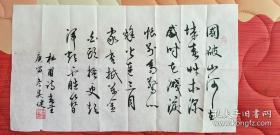 國破山河在
城春草木深
感时花溅淚
恨别鸟驚心
烽火連三月
家書抵萬金
白頭搔更短
渾欲不勝簪
杜甫詩春望
庚寅冬吴建